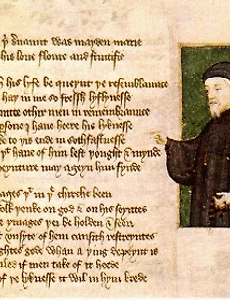 þi seruaunt was mayden marie
his loue floure and fructifie
h his lyfe be queynt þe resemblaunce
haþ in me so fressh lyflynesse
utte othir men in remembraunce
persone I haue heere his lyknesse
ke to þis ende in sothfastnesse
i þt haue of him lest þought & mynde
peynture may ageyn him fynde
mages þt in þe chirche been
folk þenke on god & on his seyntes
ymages þei beholden & seen
t vnsyte of hem causith restreyntes
ughtes gode whan a þing depeynt is
iled if men take of it heede
t of þe lyknesse it wil in hym brede